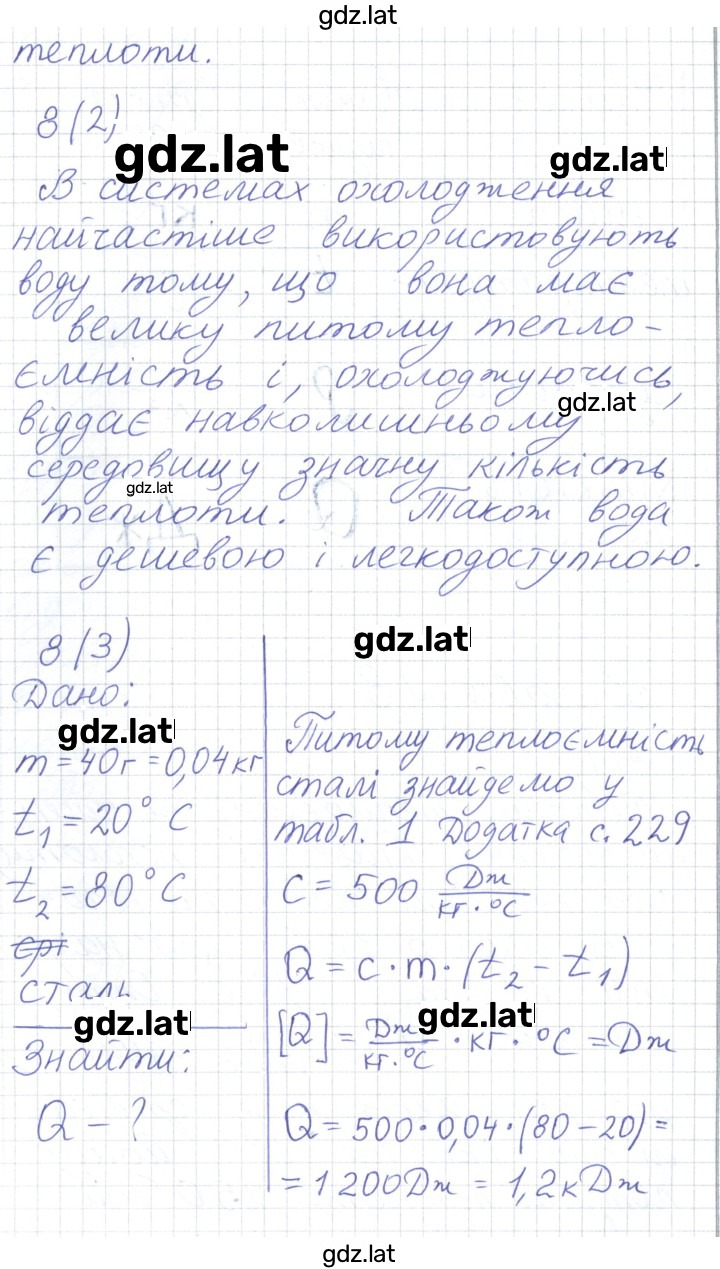 gdz.lat
теплоти.
8(2)
gdz.lat
gdz.lat
В системах охолодження
найчастіше використовують
воду тому, що вона має
велику питому тепло-
ємність і, охолоджуючись,
gdz.lat
віддає навколишньому
середовищу значну кількість
gdz.lat
теплоти. Також вода
є дешевою і легкодоступною.
8(3)
gdz.lat
Дано:
gdz.lat
m = 40 г = 0,04 кг
t₁ = 20°C
t₂ = 80°C
сталь
gdz.lat
Знайти:
Q - ?
Питому теплоємність
сталі знайдемо у
табл. 1 Додатка с. 229
C = 500 Дж/кг·°C
Q = c·m·(t₂ - t₁)
gdz.lat
[Q] = Дж/кг·°C · кг · °C = Дж
Q = 500·0,04·(80-20) =
= 1 200 Дж = 1,2 кДж
gdz.lat